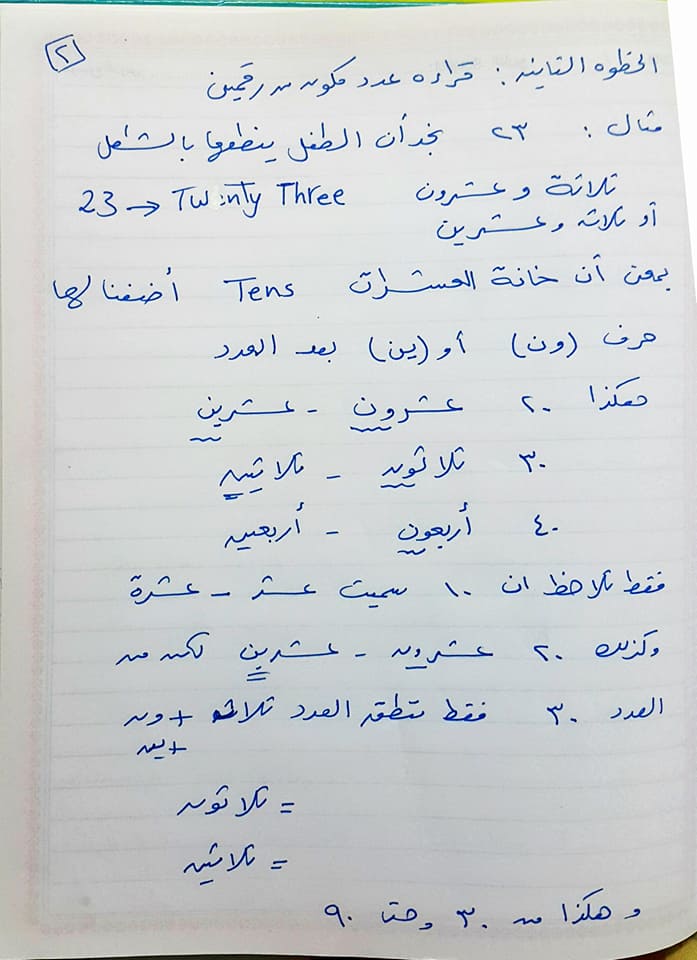 ٢
الخطوه الثانيه : قراءه عدد مكون من رقمين
مثال : ٢٣ نجد أن الطفل ينطقها بالشكل
ثلاثة وعشرون 23 → Twinty Three
أو ثلاثه وعشرين
بمعن أن خانة العشرات Tens أضفنا لها
حرف (ون) أو (ين) بعد العدد
هكذا ٢٠ عشرون - عشرين
٣٠ ثلاثون - ثلاثين
٤٠ أربعون - أربعين
فقط نلاحظ ان ١٠ سميت عشر - عشرة
وكذلك ٢٠ عشرون - عشرين لكن من
العدد ٣٠ فقط ننطق العدد ثلاث + ون
+ ين
= ثلاثون
= ثلاثين
و هكذا من ٣٠ وحتا ٩٠